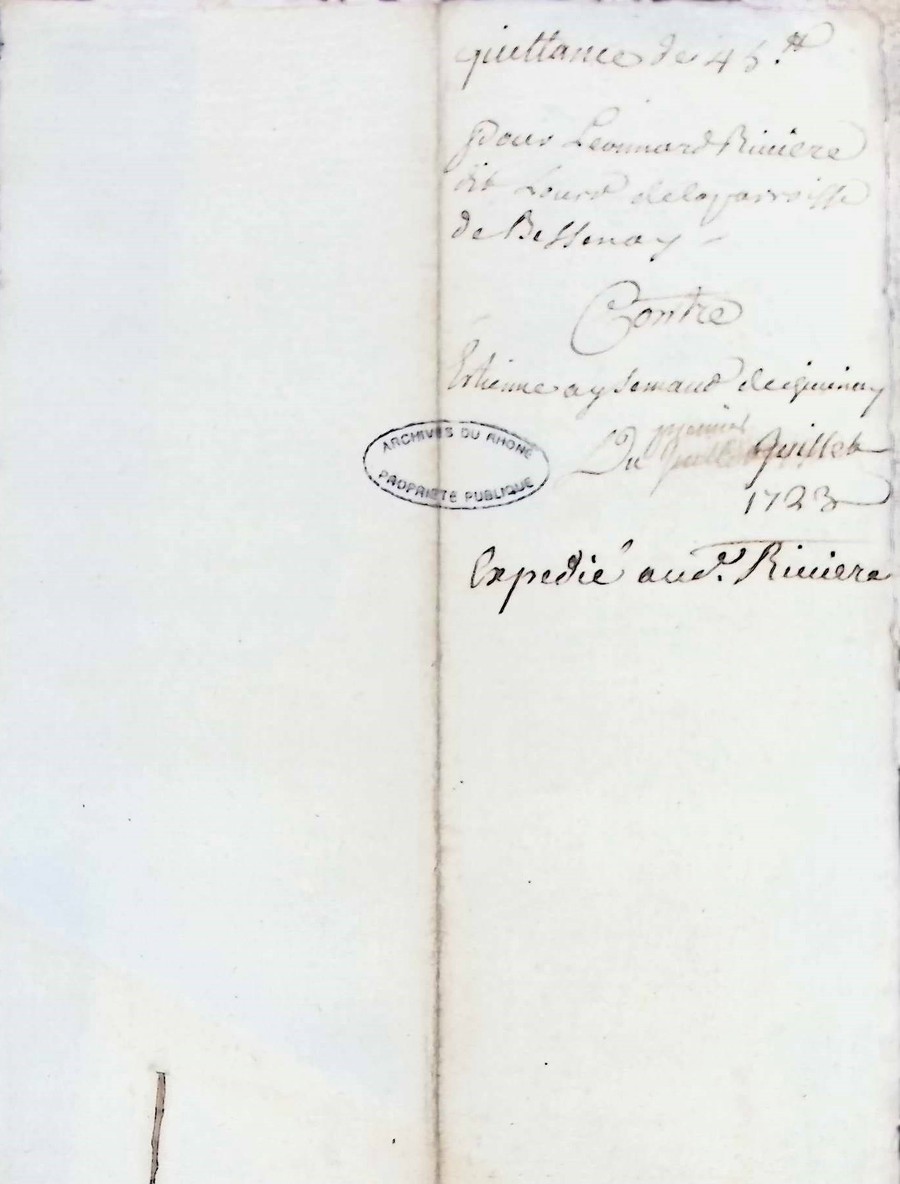 quittance de 45.tt
pour Leonnard Riviere
dit Lourd de la parroisse
de Bessenay -
Contre
Estienne aysemand
Du premier Juillet
1723
Expedié aud.t Riviere
ARCHIVES DU RHONE
PROPRIETE PUBLIQUE